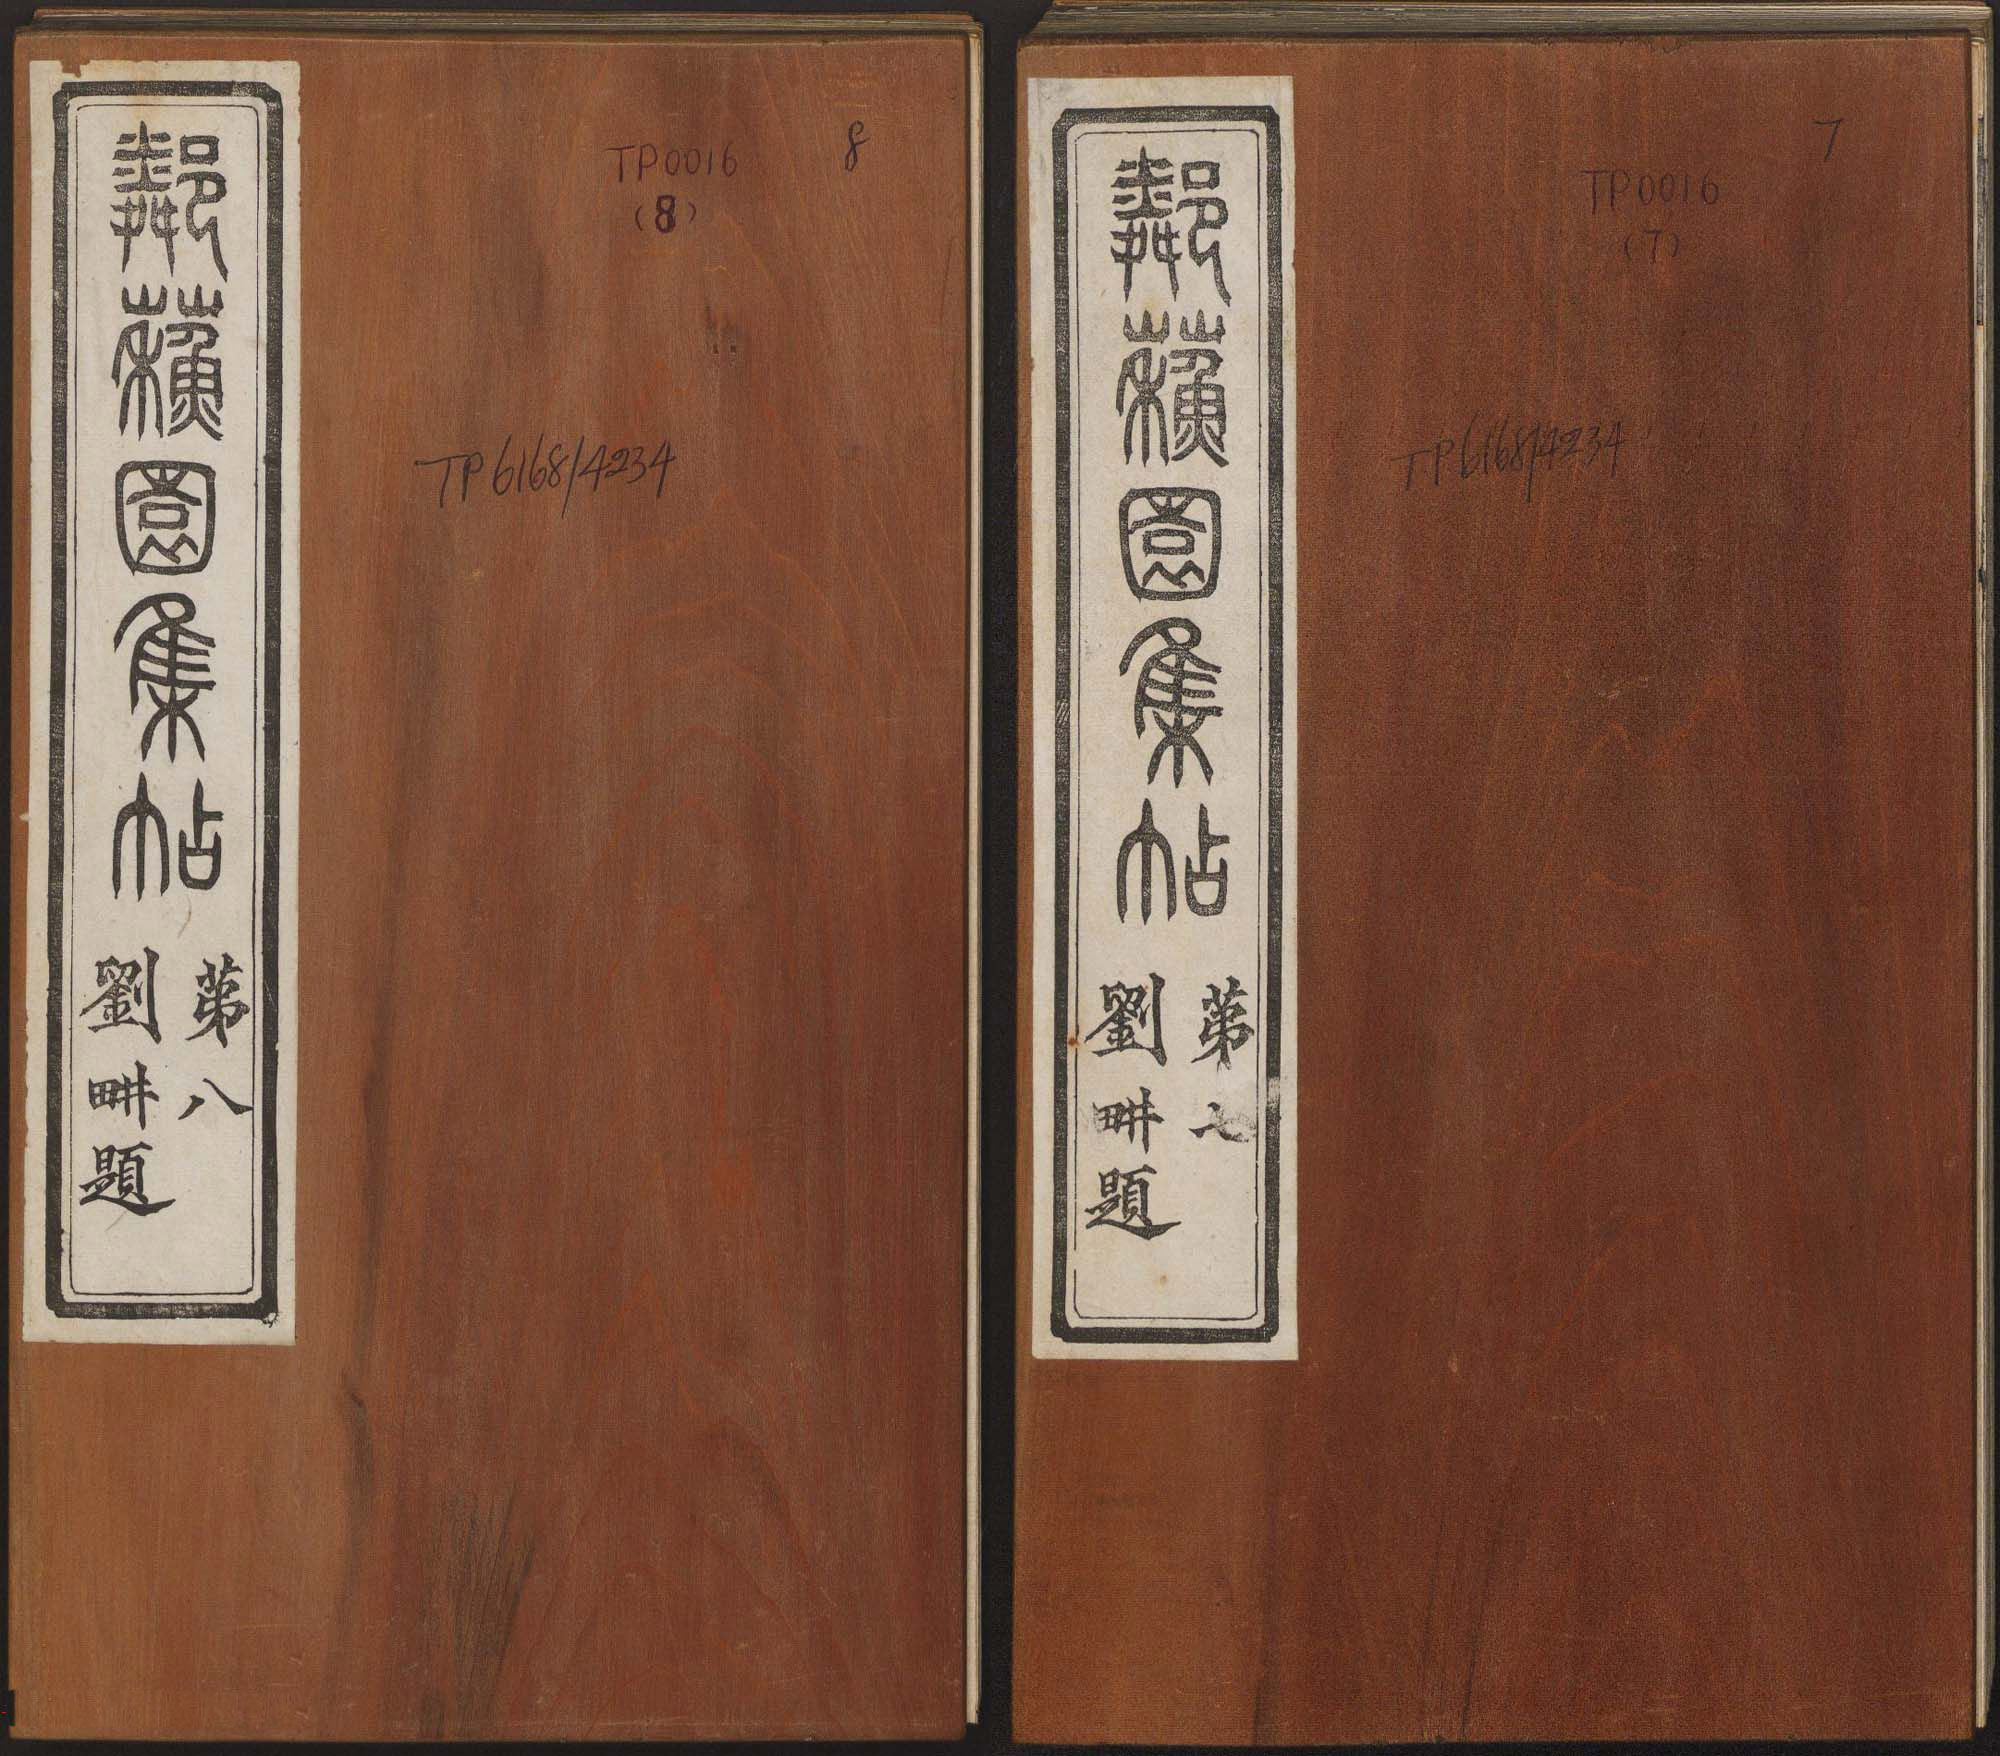 鄰蘇園集帖
苐八
劉畊題
TP0016
(8)
8
TP6168/4234
鄰蘇園集帖
苐七
劉畊題
7
TP0016
(7)
TP6168/4234